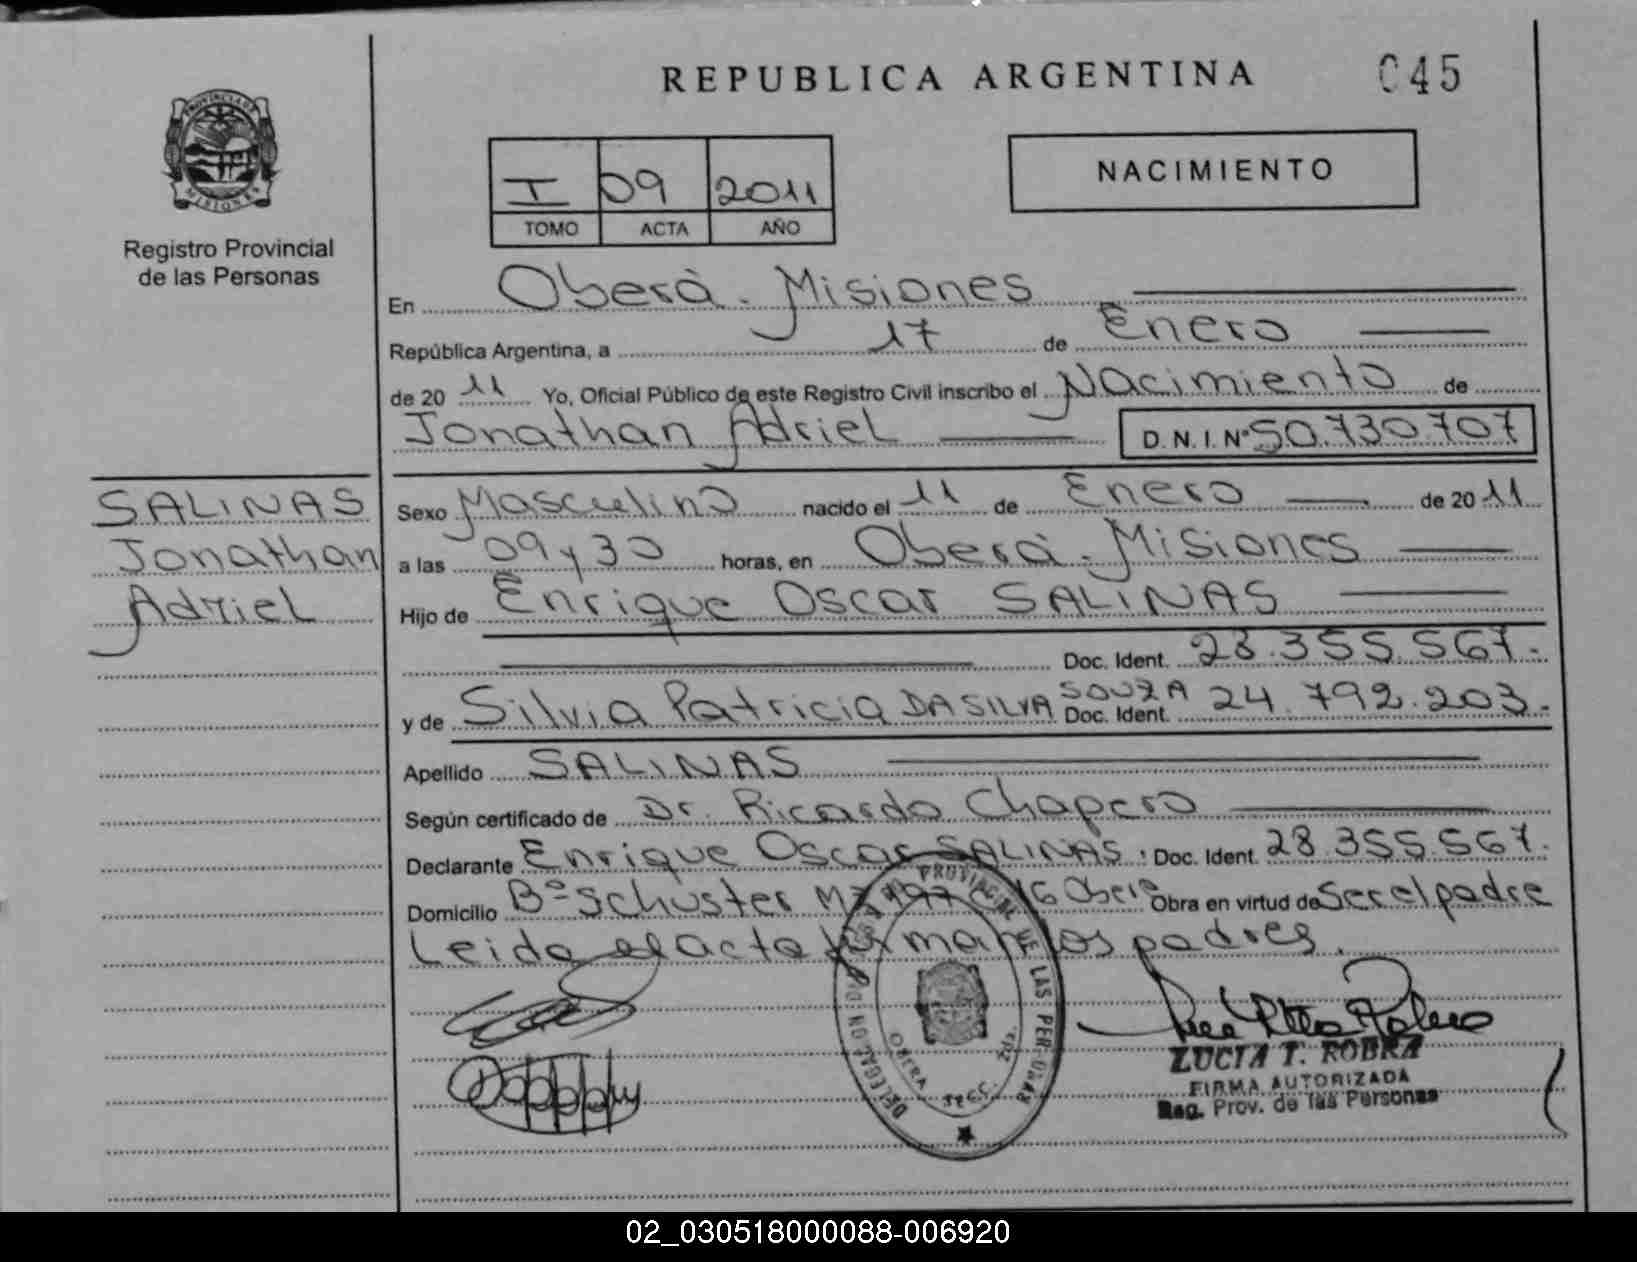 REPUBLICA ARGENTINA
045
PROVINCIA DE
MISIONES
Registro Provincial
de las Personas
I 09 2011
TOMO ACTA AÑO
NACIMIENTO
En Oberà - Misiones
República Argentina, a 17 de Enero
de 20 11 Yo, Oficial Público de este Registro Civil inscribo el Nacimiento de
Jonathan Adriel D.N.I. Nº 50.730.707
SALINAS
Jonathan
Adriel
Sexo Masculino nacido el 11 de Enero de 20 11
a las 09 y 30 horas, en Oberà - Misiones
Hijo de Enrique Oscar SALINAS
Doc. Ident. 28.355.567.-
y de Silvia Patricia DA SILVA SOUZA Doc. Ident. 24.792.203.-
Apellido SALINAS
Según certificado de Dr. Ricardo Chapero
Declarante Enrique Oscar SALINAS Doc. Ident. 28.355.567.-
Domicilio Bº Schuster Mz 197 16 Obra en virtud de Ser el padre
Leida el acta firman los padres.
PROVINCIAL DE LAS PERSONAS
DELEGACION
OBERA SECC. 2da.
LUCIA T. ROBRA
FIRMA AUTORIZADA
Reg. Prov. de las Personas
02_030518000088-006920